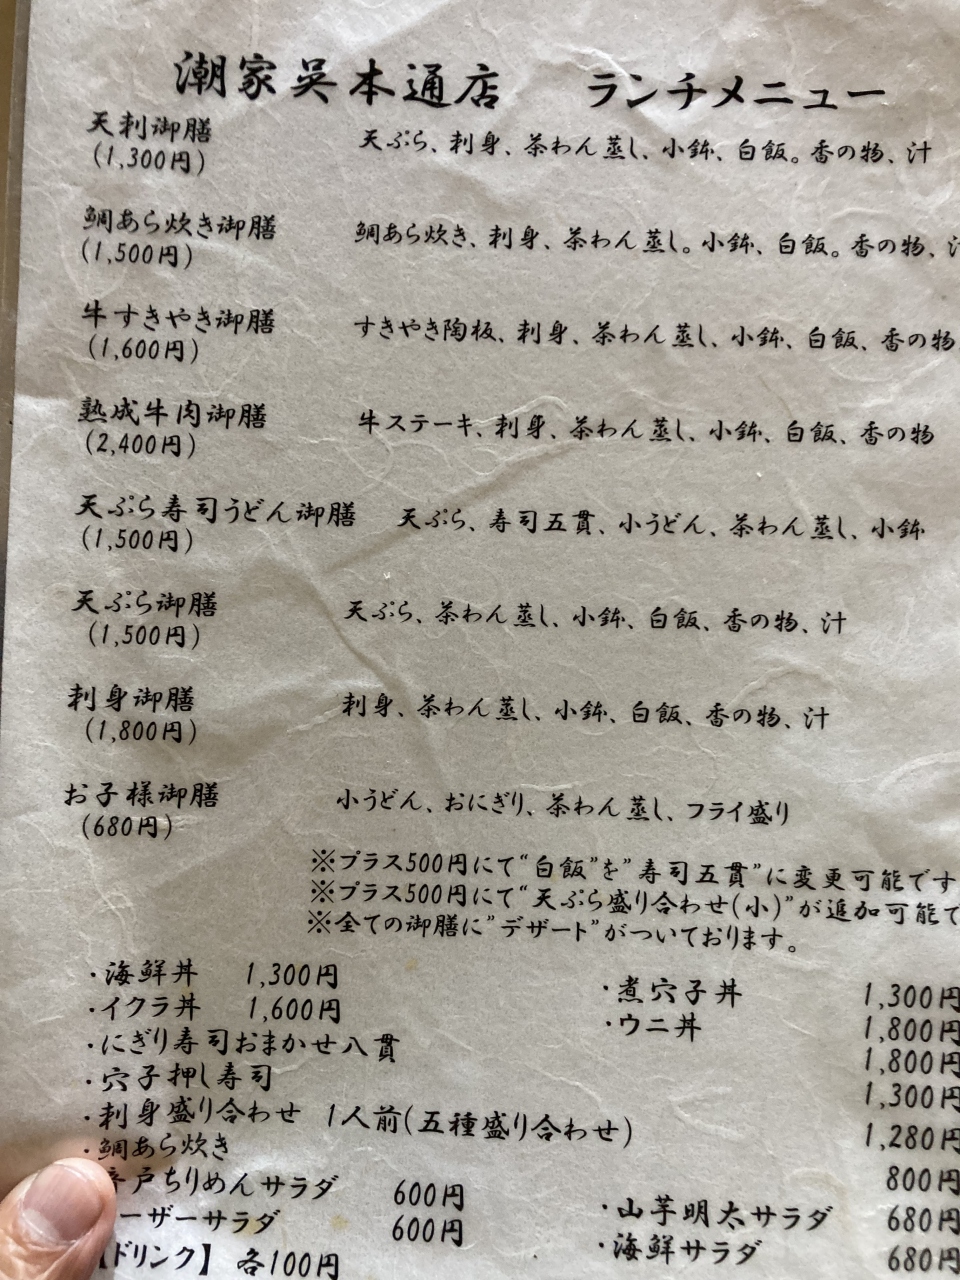 潮家呉本通店 ランチメニュー
天刺御膳 天ぷら、刺身、茶わん蒸し、小鉢、白飯。香の物、汁
(1,300円)
鯛あら炊き御膳 鯛あら炊き、刺身、茶わん蒸し。小鉢、白飯。香の物、汁
(1,500円)
牛すきやき御膳 すきやき陶板、刺身、茶わん蒸し、小鉢、白飯、香の物
(1,600円)
熟成牛肉御膳 牛ステーキ、刺身、茶わん蒸し、小鉢、白飯、香の物
(2,400円)
天ぷら寿司うどん御膳 天ぷら、寿司五貫、小うどん、茶わん蒸し、小鉢
(1,500円)
天ぷら御膳 天ぷら、茶わん蒸し、小鉢、白飯、香の物、汁
(1,500円)
刺身御膳 刺身、茶わん蒸し、小鉢、白飯、香の物、汁
(1,800円)
お子様御膳 小うどん、おにぎり、茶わん蒸し、フライ盛り
(680円)
※プラス500円にて“白飯”を”寿司五貫”に変更可能です
※プラス500円にて“天ぷら盛り合わせ(小)”が追加可能で
※全ての御膳に”デザート”がついております。
・海鮮丼 1,300円 ・煮穴子丼 1,300円
・イクラ丼 1,600円 ・ウニ丼 1,800円
・にぎり寿司おまかせ八貫 1,800円
・穴子押し寿司 1,300円
・刺身盛り合わせ 1人前(五種盛り合わせ) 1,280円
・鯛あら炊き 800円
戸ちりめんサラダ 600円 ・山芋明太サラダ 680円
ーザーサラダ 600円 ・海鮮サラダ 680円
【ドリンク】 各100円